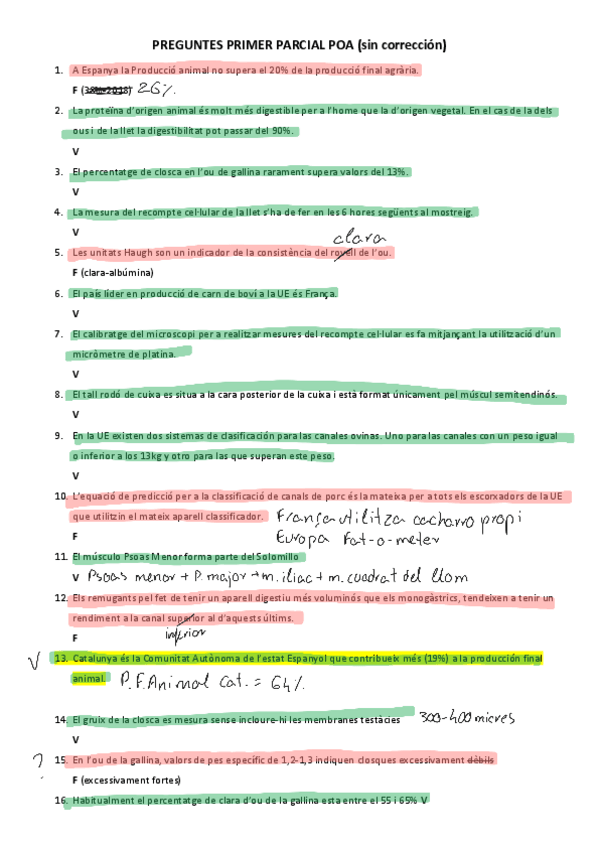 PREGUNTES PRIMER PARCIAL POA (sin corrección)
1. A Espanya la Producció animal no supera el 20% de la producció final agrària.
F (38%-2018) 26%
2. La proteïna d'origen animal és molt més digestible per a l'home que la d'origen vegetal. En el cas de la dels
ous i de la llet la digestibilitat pot passar del 90%.
V
3. El percentatge de closca en l'ou de gallina rarament supera valors del 13%.
V
4. La mesura del recompte cel·lular de la llet s'ha de fer en les 6 hores següents al mostreig.
V
clara
5. Les unitats Haugh son un indicador de la consistència del rovell de l'ou.
F (clara-albúmina)
6. El país líder en producció de carn de boví a la UE és França.
V
7. El calibratge del microscopi per a realitzar mesures del recompte cel·lular es fa mitjançant la utilització d'un
micròmetre de platina.
V
8. El tall rodó de cuixa es situa a la cara posterior de la cuixa i està format únicament pel múscul semitendinós.
V
9. En la UE existen dos sistemas de clasificación para las canales ovinas. Uno para las canales con un peso igual
o inferior a los 13kg y otro para las que superan este peso.
V
10. L'equació de predicció per a la classificació de canals de porc és la mateixa per a tots els escorxadors de la UE
que utilitzin el mateix aparell classificador. França utilitza cacharro propi
F Europa Fat-o-meter
11. El músculo Psoas Menor forma parte del Solomillo
V Psoas menor + P. major + m. iliac + m. cuadrat del llom
12. Els remugants pel fet de tenir un aparell digestiu més voluminós que els monogàstrics, tendeixen a tenir un
rendiment a la canal superior al d'aquests últims.
F inferior
V 13. Catalunya és la Comunitat Autònoma de l'estat Espanyol que contribueix més (19%) a la producción final
animal. P.F. Animal Cat. = 64%
14. El gruix de la closca es mesura sense incloure-hi les membranes testàcies 300-400 micres
V
? 15. En l'ou de la gallina, valors de pes específic de 1,2-1,3 indiquen closques excessivament dèbils
F (excessivament fortes)
16. Habitualment el percentatge de clara d'ou de la gallina esta entre el 55 i 65% V